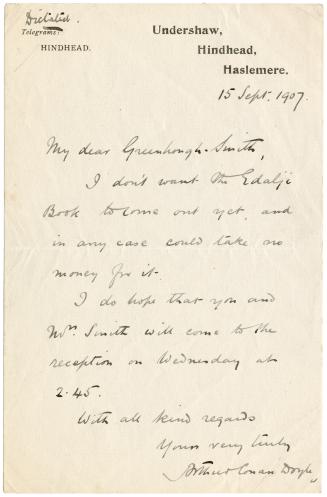 Dictated.
Telegrams:
HINDHEAD.
Undershaw,
Hindhead,
Haslemere.
15 Sept. 1907.
My dear Greenhough-Smith,
I don't want the Edalji
Book to come out yet, and
in any case could take no
money for it.
I do hope that you and
Mrs. Smith will come to the
reception on Wednesday at
2.45.
With all kind regards
Yours very truly
Arthur Conan Doyle